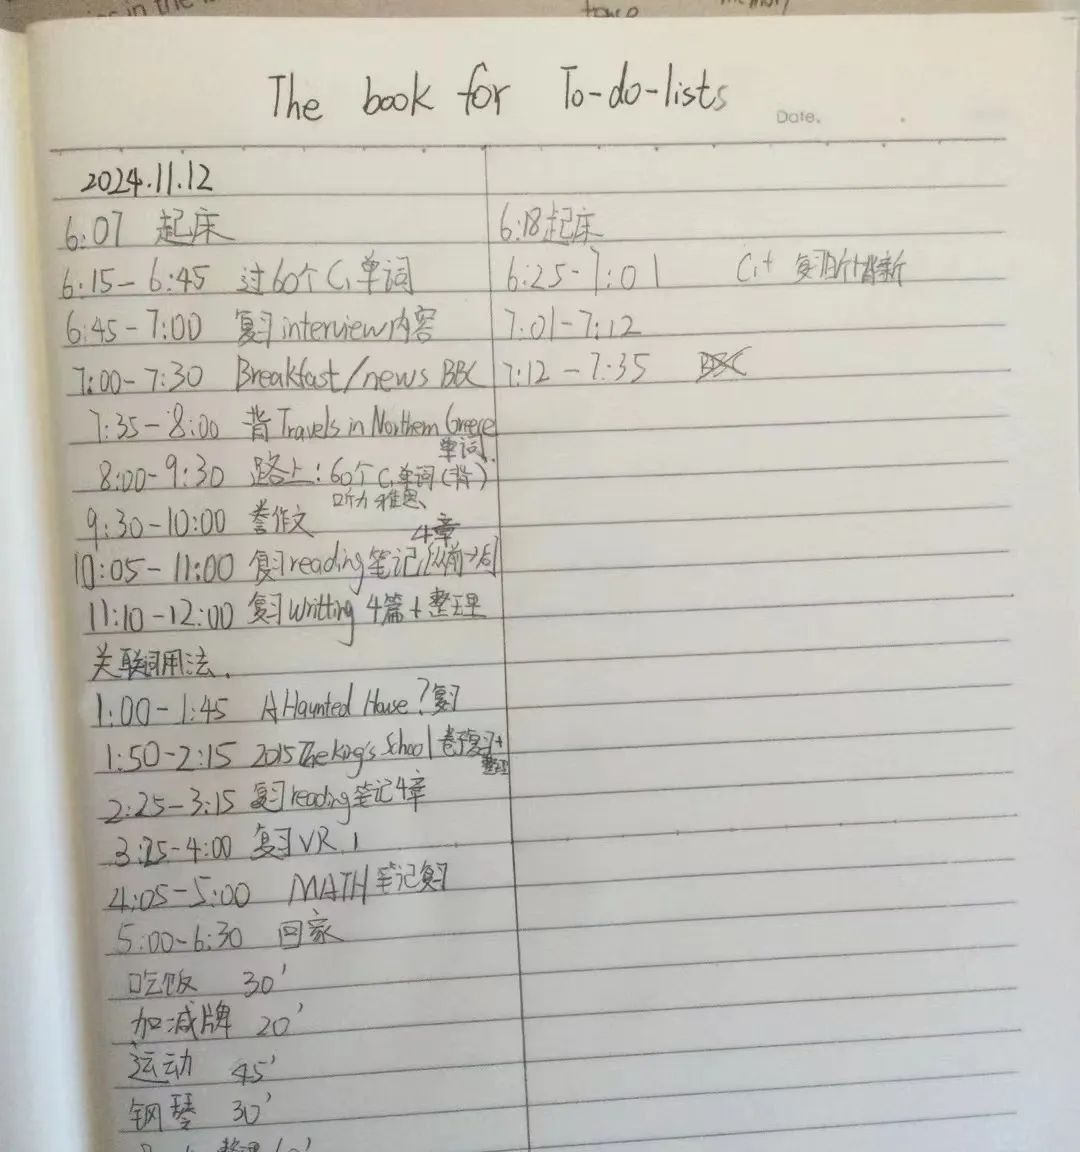 in the
The book for To-do-lists
Date.
2024.11.12
6:07 起床
6:18起床
6:15-6:45 过60个C1单词
6:25-7:01 C1+ 复习
6:45-7:00 复习interview内容
7:01-7:12
7:00-7:30 Breakfast/news BBC
7:12-7:35 BBC
7:35-8:00 背Travels in Northern Greece
单词.
8:00-9:30 路上:60个C1单词(背)
听力 雅思
9:30-10:00 誊作文
4章
10:05-11:00 复习reading笔记(从前→后
11:10-12:00 复习Writting 4篇+整理
关联词用法.
1:00-1:45 A Haunted House?复习
1:50-2:15 2015 The king's School卷子复习+
整理
2:25-3:15 复习reading笔记4章
3:25-4:00 复习VR 1
4:05-5:00 MATH笔记复习
5:00-6:30 回家
吃饭 30'
加减牌 20'
运动 45'
钢琴 30'
整理